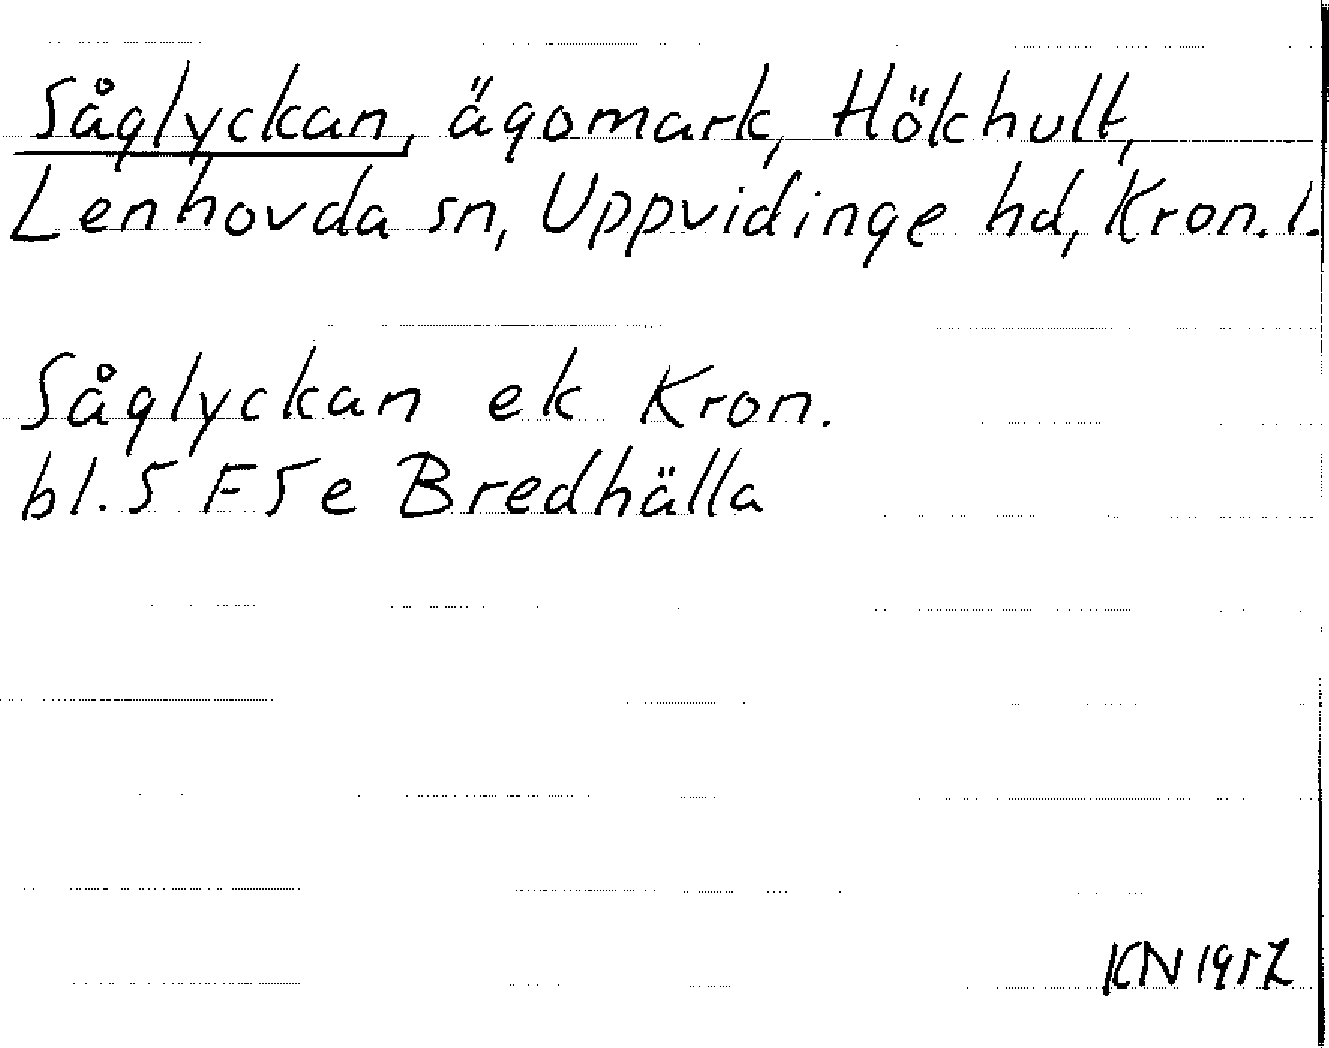 Såglyckan, ägomark, Hökhult,
Lenhovda sn, Uppvidinge hd, Kron. l.
Såglyckan ek Kron.
bl. 5 F5e Bredhälla
KN 1957